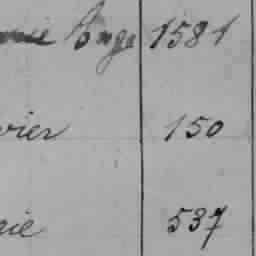 Ange 1581
vier 150
rie 537